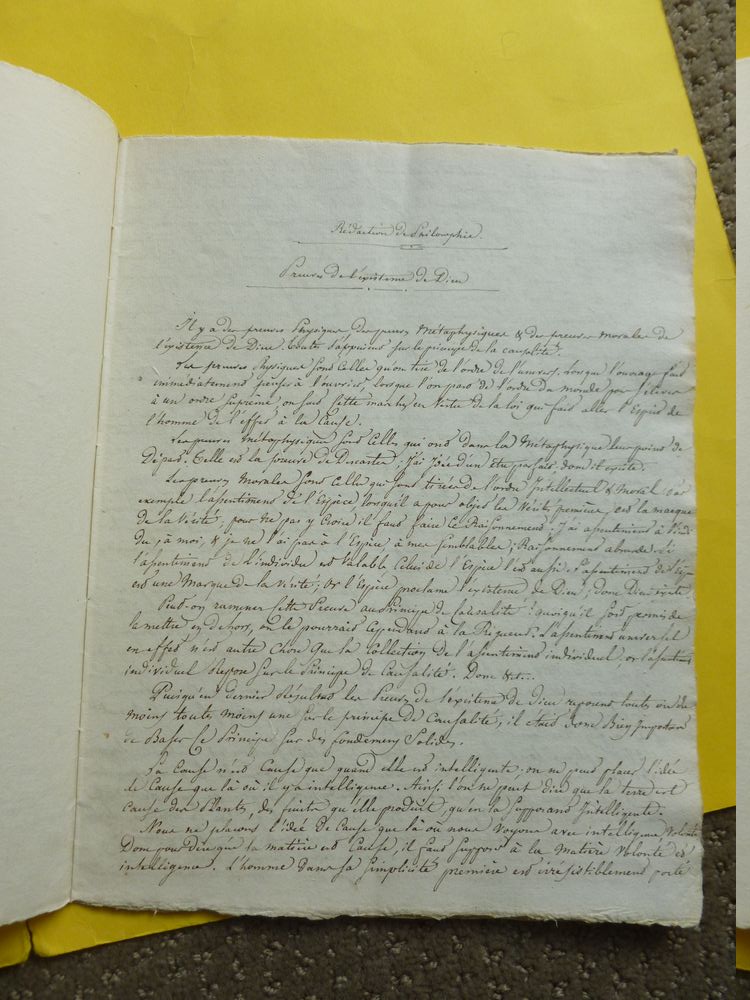 Rédaction de Philosophie.
Preuves de l'existence de Dieu
Il y a des preuves Physiques, des preuves Métaphysiques & des preuves morales de
l'existence de Dieu. Toutes s'appuient sur le principe de la causalité.
Les preuves Physiques sont Celles qu'on tire de l'ordre de l'univers. Lorsque l'ouvrage fait
immédiatement penser à l'ouvrier, lorsque l'on part de l'ordre du monde pour s'élever
à un ordre Suprême, on suit Cette marche, en Vertu de la loi qui fait aller l'Esprit de
l'homme de l'effet à la Cause.
Les preuves Métaphysiques sont Celles qui ont dans la Métaphysique leur point de
Départ. Telle est la preuve de Descartes. J'ai l'idée d'un être parfait. Donc il existe.
Les preuves Morales sont Celles qui sont tirées de l'ordre Intellectuel & Moral. Par
exemple l'assentiment de l'Espèce, lorsqu'il a pour objet les Vérités premières, est la marque
de la Vérité, pour ne pas y Croire il faut faire Ce Raisonnement. J'ai assentiment à l'indi
du, à moi, & je ne l'ai pas à l'Espèce à mes semblables; Raisonnement absurde. Si
l'assentiment de l'individu est Valable Celui de l'Espèce l'est aussi. L'assentiment de l'Espèce
est une Marque de la Vérité; Or l'Espèce proclame l'existence de Dieu; donc Dieu existe.
Peut-on ramener Cette Preuve au Principe de Causalité? quoiqu'il soit permis de
la mettre en dehors, on le pourrait Cependant à la Rigueur. L'assentiment universel
en effet n'est autre chose que la Collection de l'assentiment individuel or l'assentiment
individuel Repose sur le Principe de Causalité. Donc &c...
Puisqu'en dernier Résultat les Preuves de l'existence de Dieu reposent toutes ou du
moins toutes moins une sur le principe de Causalité, il était donc Bien Important
de Baser Ce Principe sur des fondemens Solides.
La Cause n'est Cause que quand elle est intelligente; on ne peut placer l'idée
de Cause que là où il y a intelligence. Ainsi l'on ne peut dire que la terre est
cause des Plantes, des fruits qu'elle produit, qu'en la supposant Intelligente.
Nous ne plaçons l'idée de Cause que là où nous voyons avec intelligence Volonté
Donc pour Dire que la matière est Cause, il faut supposer à la Matière Volonté et
intelligence. L'homme dans sa Simplicité première est irrésistiblement porté